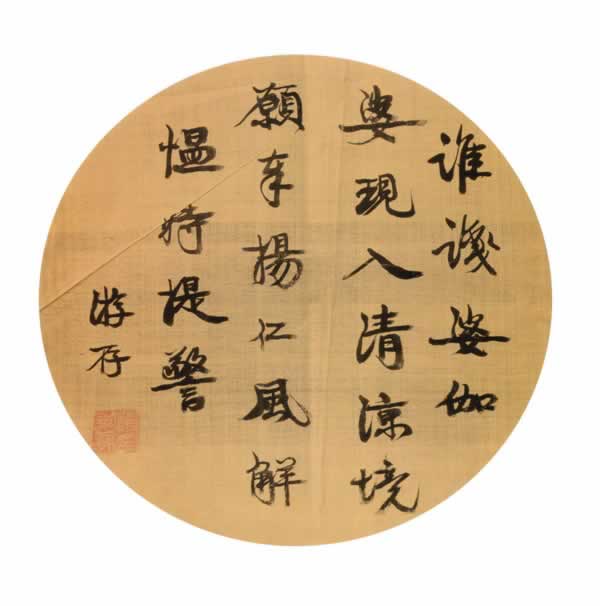 誰識婆伽
婆現入清涼境
願奉揚仁風解
愠時提警
游存